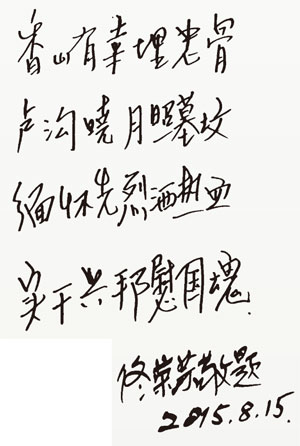 香山有幸埋忠骨
卢沟晓月照墓坟
缅怀先烈洒热血
实干兴邦慰国魂
佟荣芳敬题
2015.8.15.